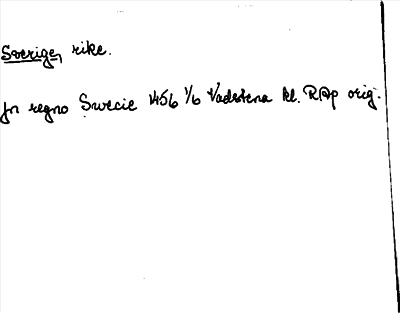 Sverige, rike.
Jn regno Swecie 1456 1/6 Vadstena kl. RAp orig.